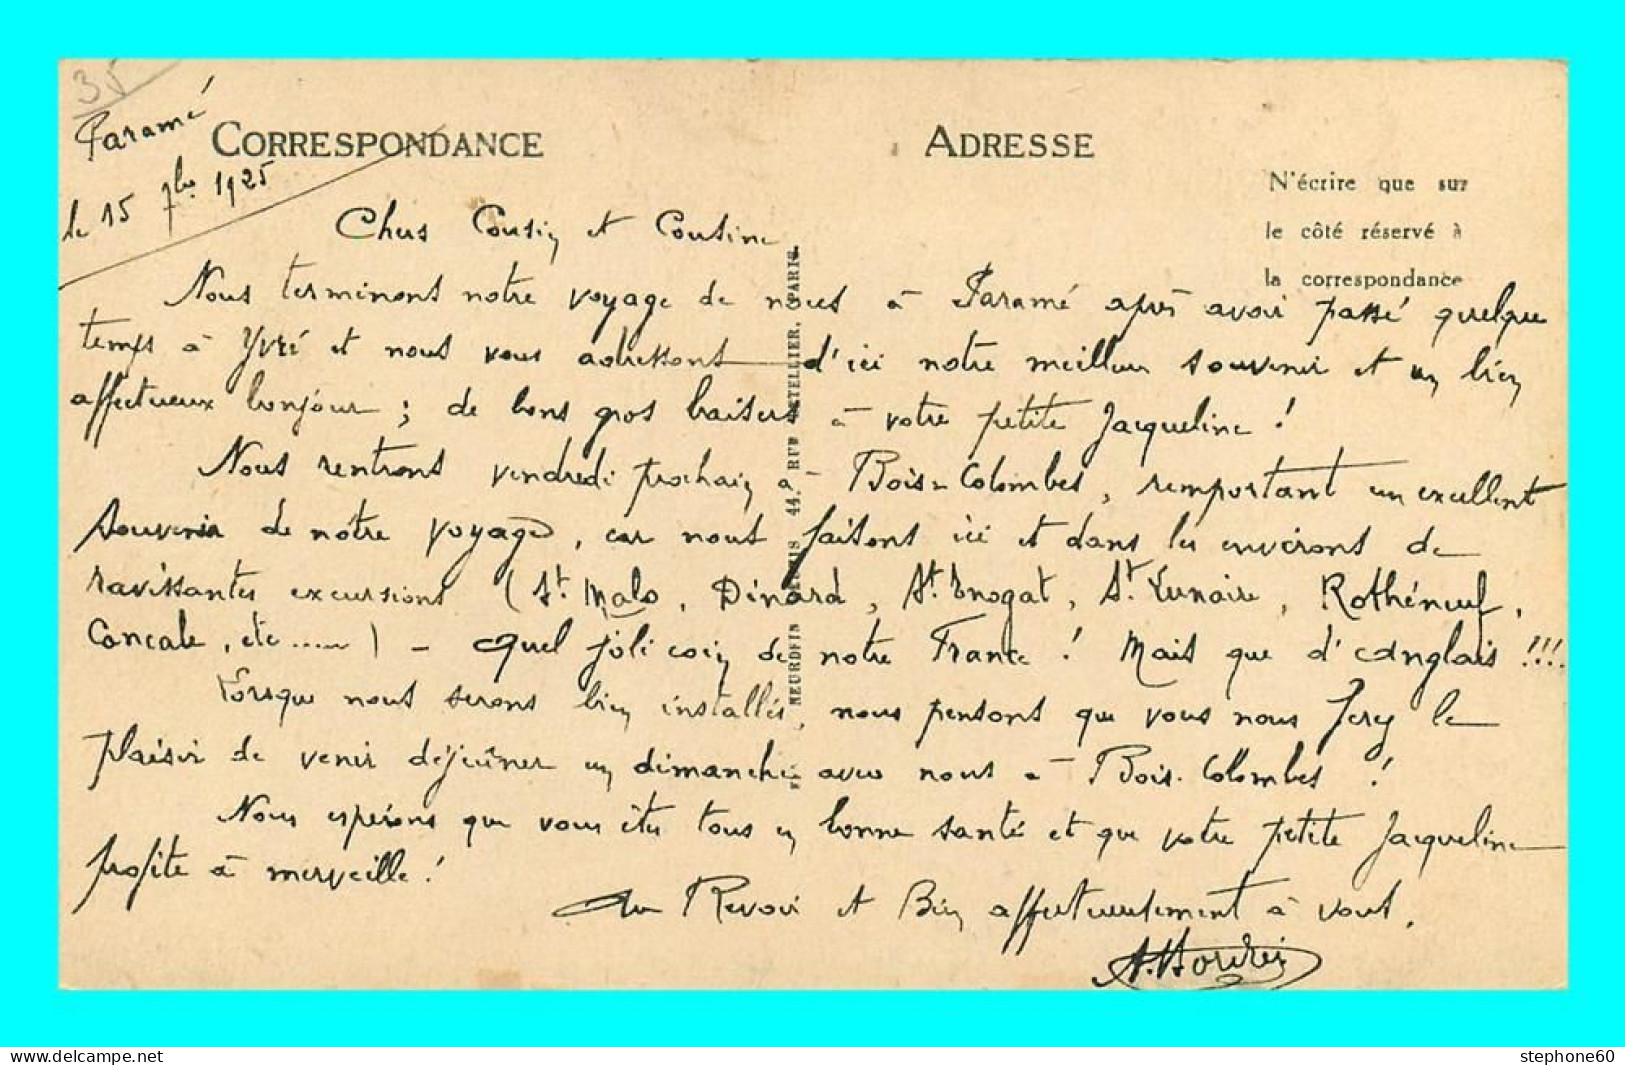 35
Paramé
le 15 7bre 1925
CORRESPONDANCE
ADRESSE
N'écrire que sur
le côté réservé à
la correspondance
Chers Cousin et Cousine
Nous terminons notre voyage de noces à Paramé après avoir passé quelque
temps à Yvré et nous vous adressons d'ici notre meilleur souvenir et un bien
affectueux bonjour ; de bons gros baisers à votre petite Jacqueline !
Nous rentrons vendredi prochain à Bois-Colombes, remportant un excellent
souvenir de notre voyage, car nous faisons ici et dans les environs de
ravissantes excursions (St Malo, Dinard, St Enogat, St Lunaire, Rothéneuf,
Cancale, etc ......) - Quel joli coin de notre France ! Mais que d'anglais !!!!
Lorsque nous serons bien installés, nous pensons que vous nous ferez le
plaisir de venir déjeûner un dimanche avec nous à Bois-Colombes !
Nous espérons que vous êtes tous en bonne santé et que votre petite Jacqueline
profite à merveille !
Au Revoir et Bien affectueusement à vous.
NEURDEIN 44, RUE LETELLIER, PARIS.
www.delcampe.net
stephone60